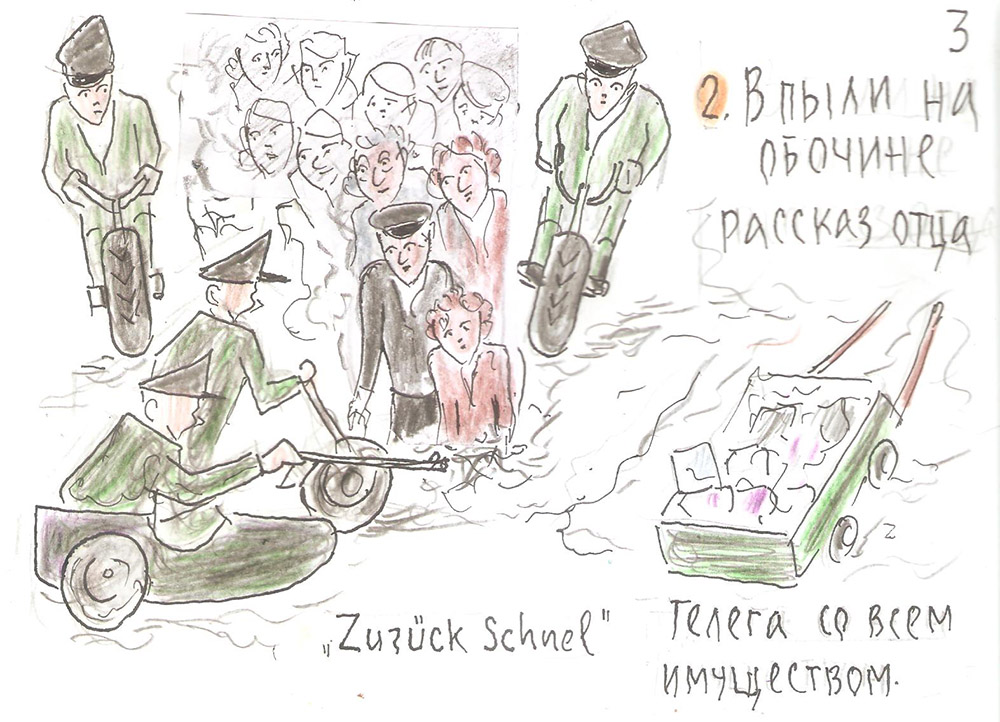 3
2. В пыли на
обочине
рассказ отца
„Zurück Schnel"
Телега со всем
имуществом.